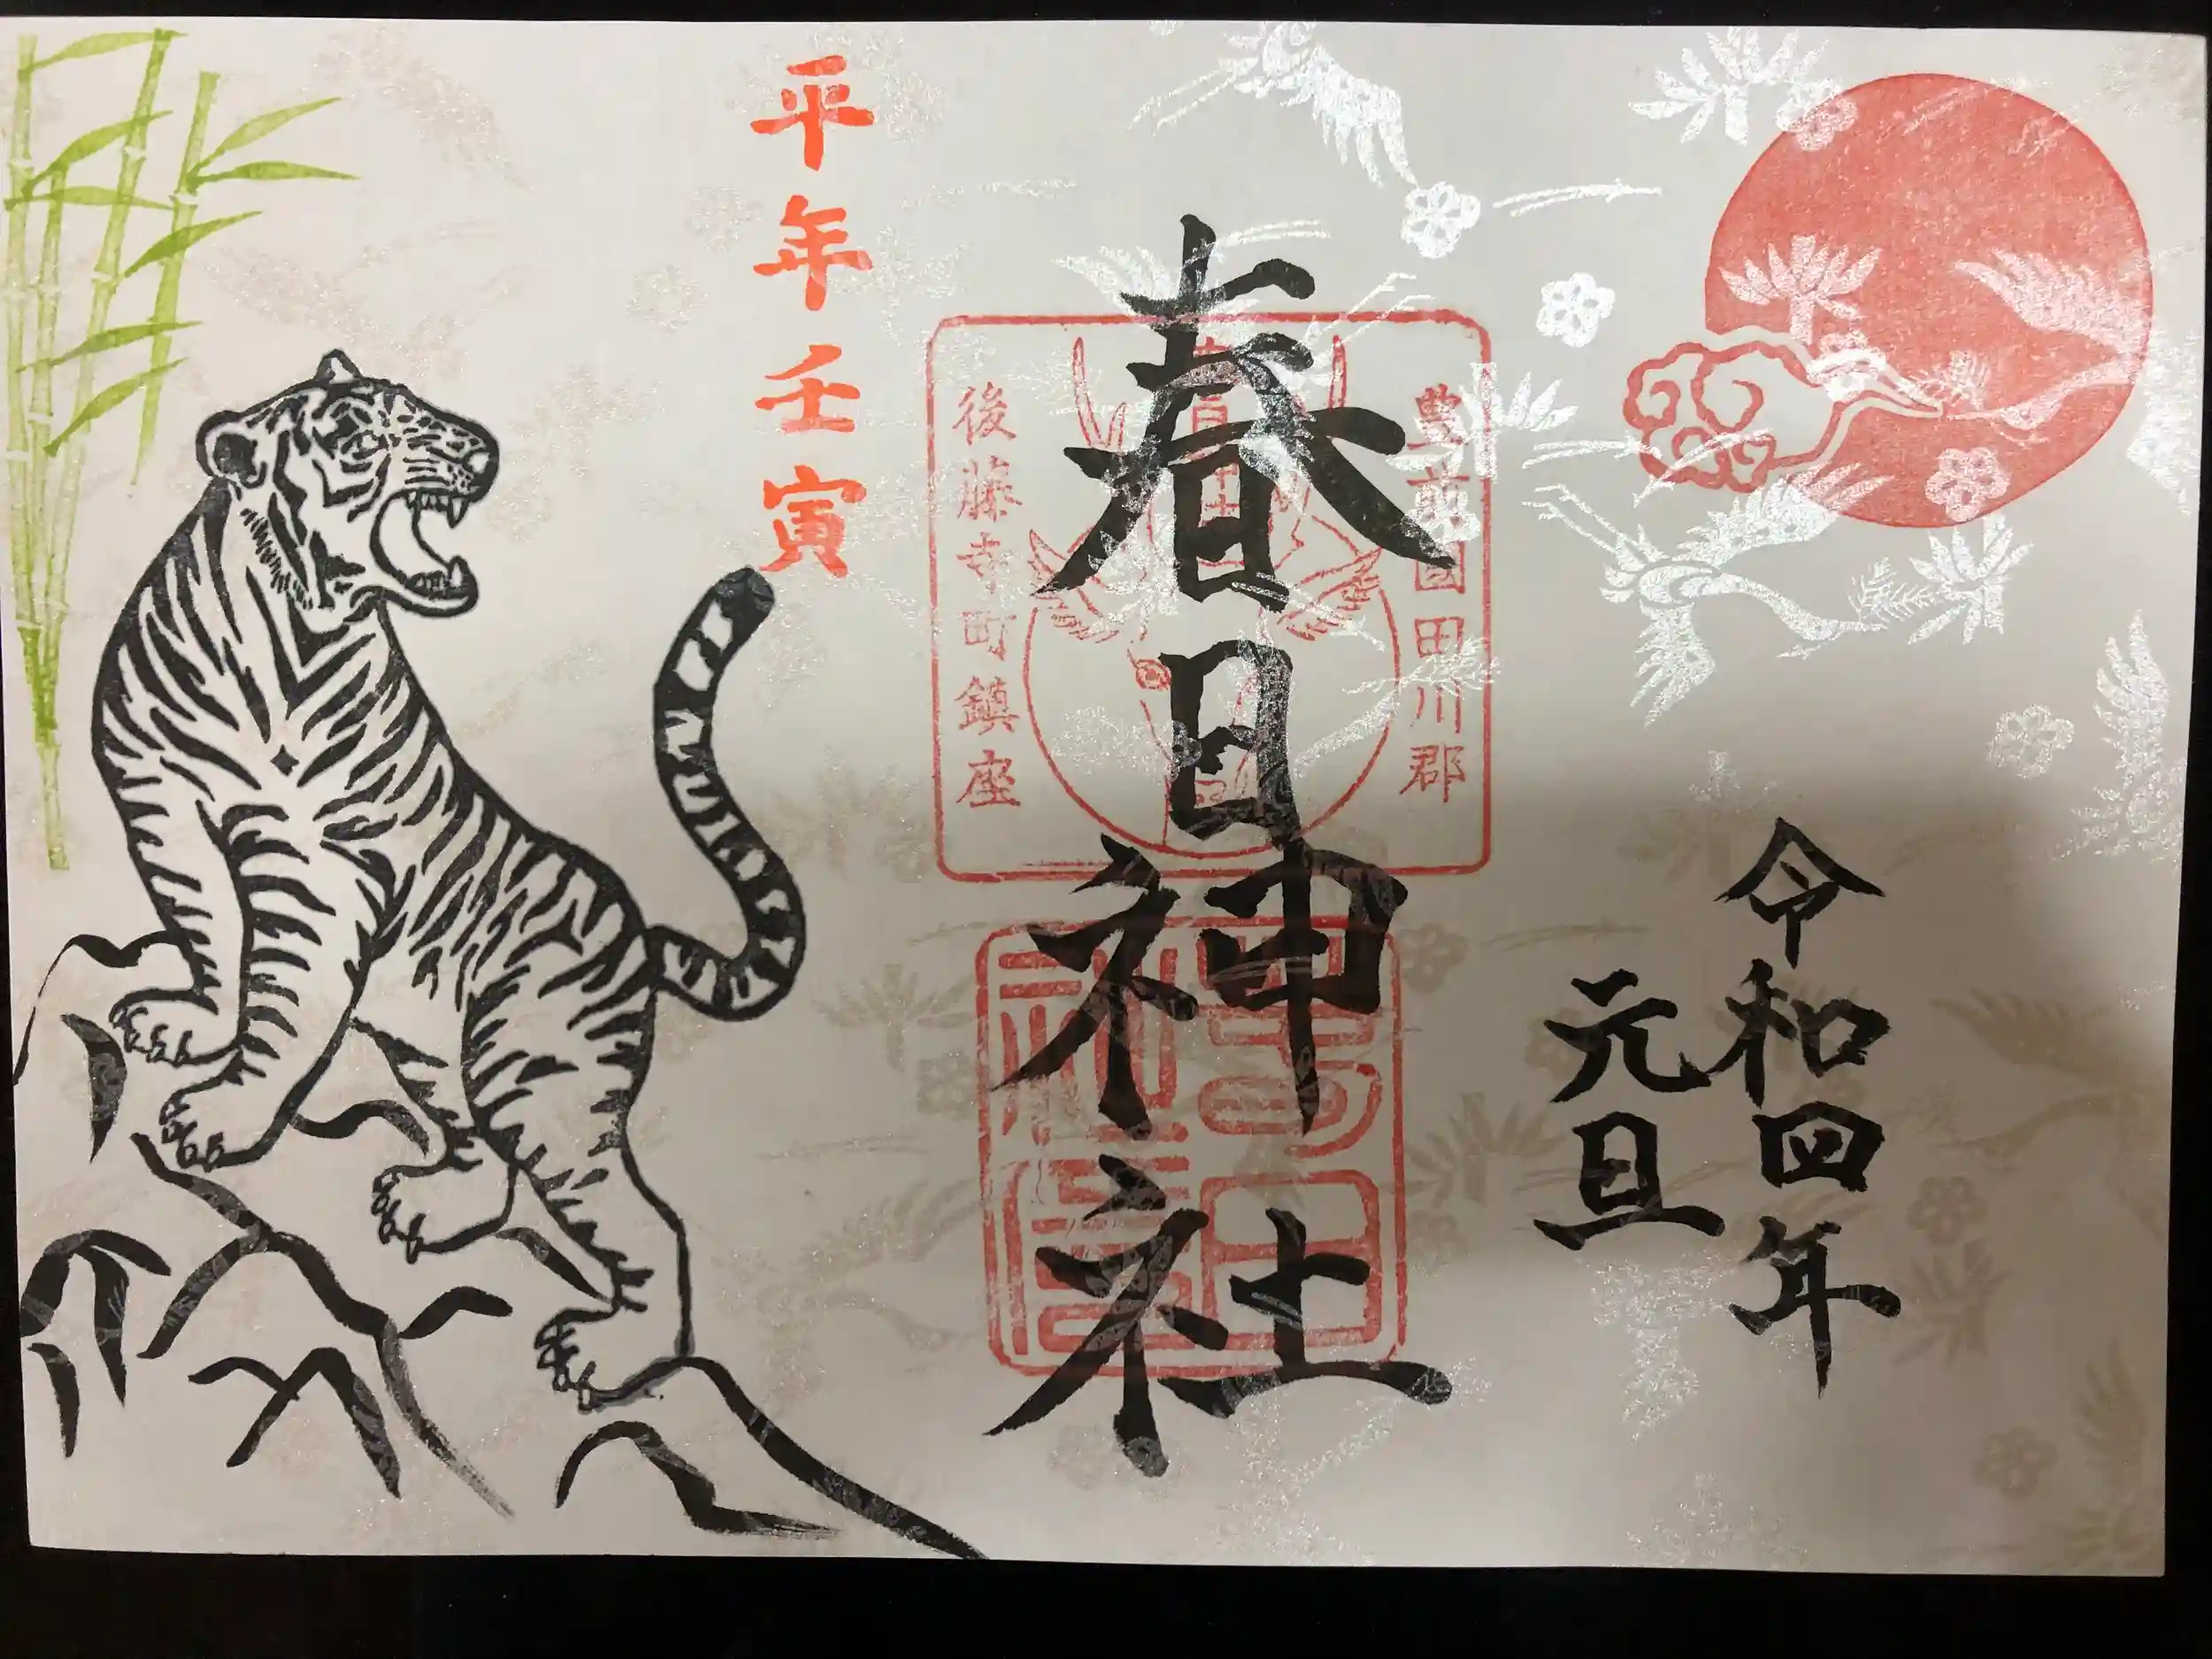 令和四年
元旦
春日神社
豊前国田川郡
後藤寺町鎮座
平年壬寅